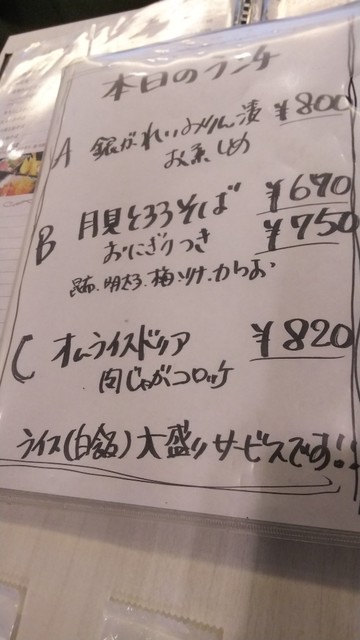 本日のランチ
A 銀がれいみりん漬 ¥800
お煮しめ
B 月見とろろそば ¥670
おにぎりつき ¥750
昆布、明太子、梅、シャケ、からあ
C オムライスドリア ¥820
肉じゃがコロッケ
ライス(白飯)大盛りサービスです!!